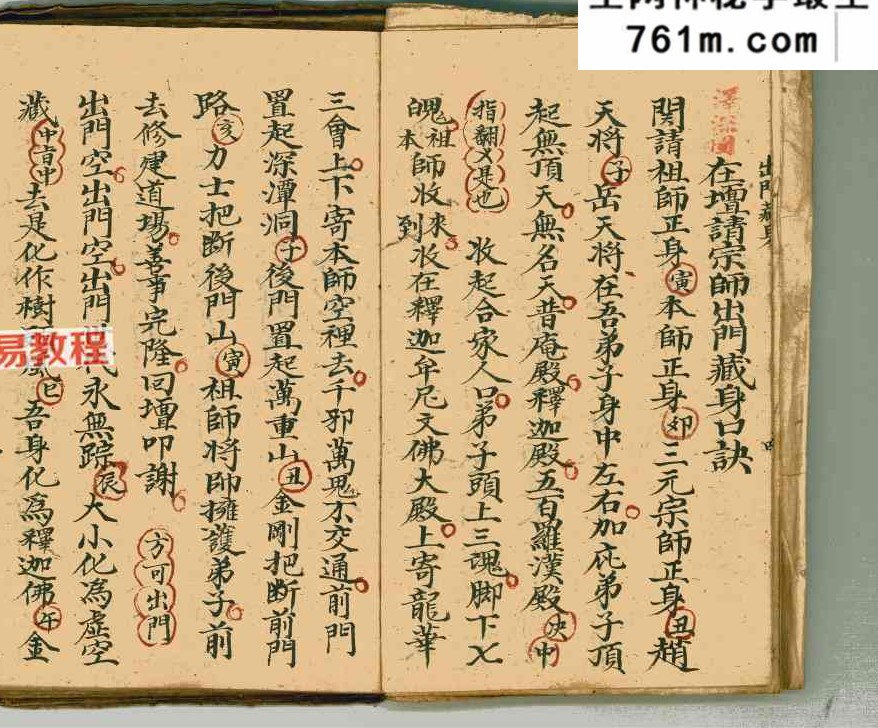 761m.com
出門藏身
在壇請宗師出門藏身口訣
関請祖師正身寅本師正身卯三元宗師正身丑趙
天将子岳天将在吾弟子身中左右加庇弟子頂
起無頂天無名天普庵殿釋迦殿五百羅漢殿決中
指翻叉是也 收起合家人口弟子頭上三魂脚下七
魄祖本師收來到收在釋迦牟尼文佛大殿上寄龍華
三會上下寄本師空裡去千邪萬鬼不交通前門
置起深潭洞子後門置起萬重山丑金剛把断前門
路亥力士把断後門山寅祖師将師擁護弟子前
去修建道場善事完隆回壇叩謝 方可出門
出門空出門空出門永無踪辰大小化為虚空
藏中言中去是化作樹巳吾身化為釋迦佛午金
易教程